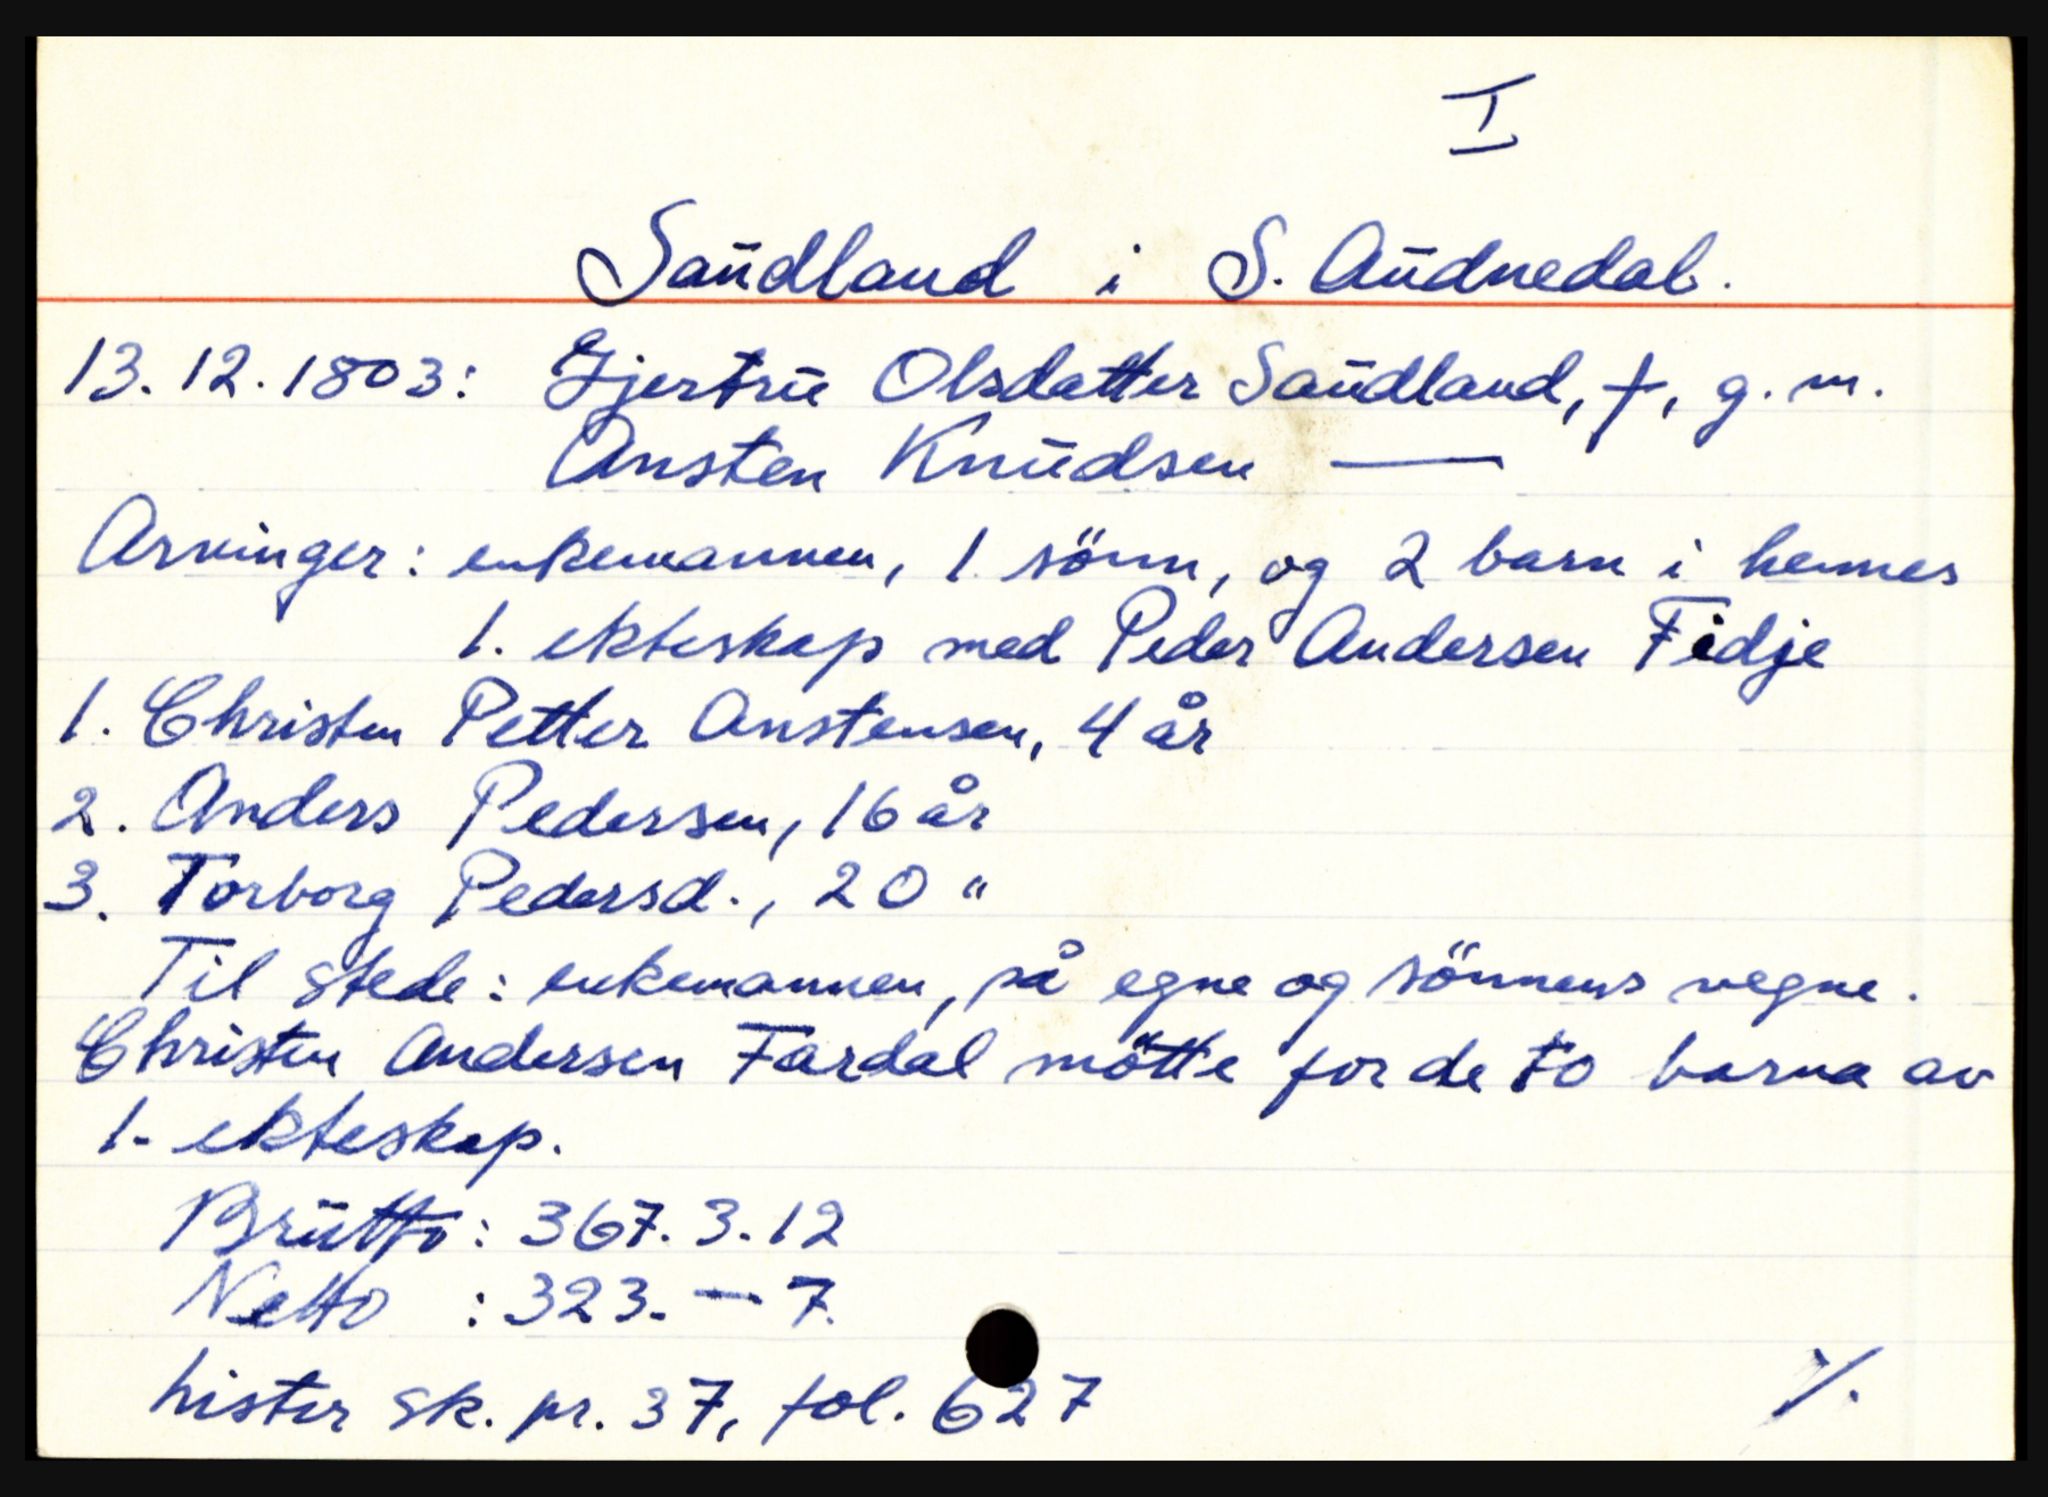 I
Saudland i S. Audnedal.
13.12.1803: Gjertru Olsdatter Saudland, †, g. m.
Ansten Knudsen —
Arvinger: enkemannen, 1 sönn, og 2 barn i hennes
1. ekteskap med Peder Andersen Fidje
1. Christen Petter Anstensen, 4 år
2. Anders Pedersen, 16 år
3. Torborg Pedersd., 20 "
Til stede: enkemannen, på egne og sönnens vegne.
Christen Andersen Fardal mötte for de to barna av
1. ekteskap.
Brutto: 367.3.12
Netto : 323. — 7.
Lister sk. pr. 37, fol. 627
⁒